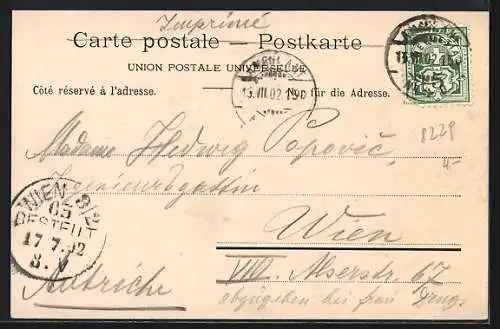 Imprimé
Carte postale — Postkarte
UNION POSTALE UNIVERSELLE
Côté réservé à l'adresse.
Nur für die Adresse.
15.VII.02.
8229
Madame Hedwig Popovič,
Ingenieursgattin
Wien
VIII. Alserstr. 67
abzugeben bei Frau
Autriche
WIEN 8/2
65
BESTELLT
17.7.02